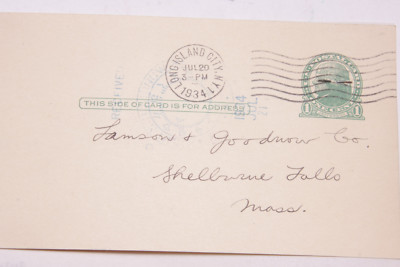 LONG ISLAND CITY, N.Y.
JUL 20
3-PM
1934
THIS SIDE OF CARD IS FOR ADDRESS
1 1
1934
JUL
Lamson & Goodnow Co.
Shelburne Falls
Mass.